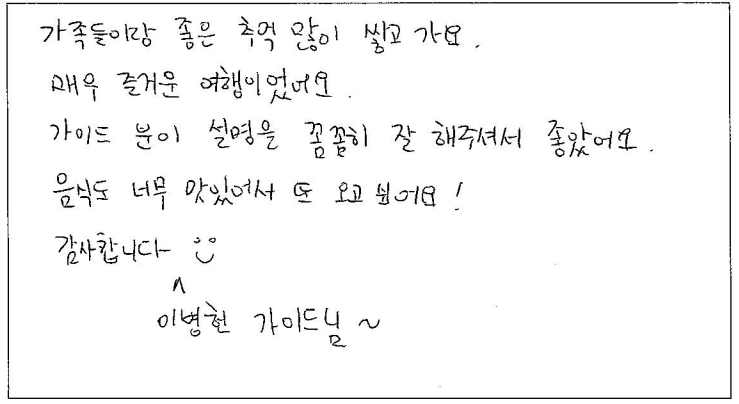 가족들이랑 좋은 추억 많이 쌓고 가요.
매우 즐거운 여행이었어요.
가이드 분이 설명을 꼼꼼히 잘 해주셔서 좋았어요.
음식도 너무 맛있어서 또 오고 싶어요!
감사합니다 :)
^
이병헌 가이드님~